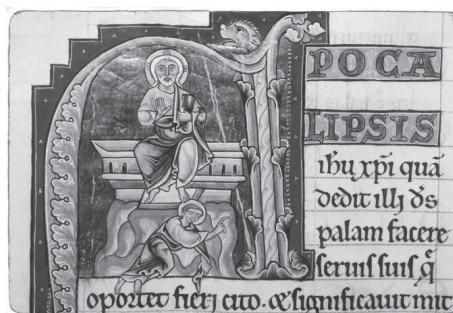 A
POCA
LIPSIS
ihu xp̄i quā
dedit illi d̄s
palam facere
seruis suis q̄
oportet fieri cito. & significauit mit